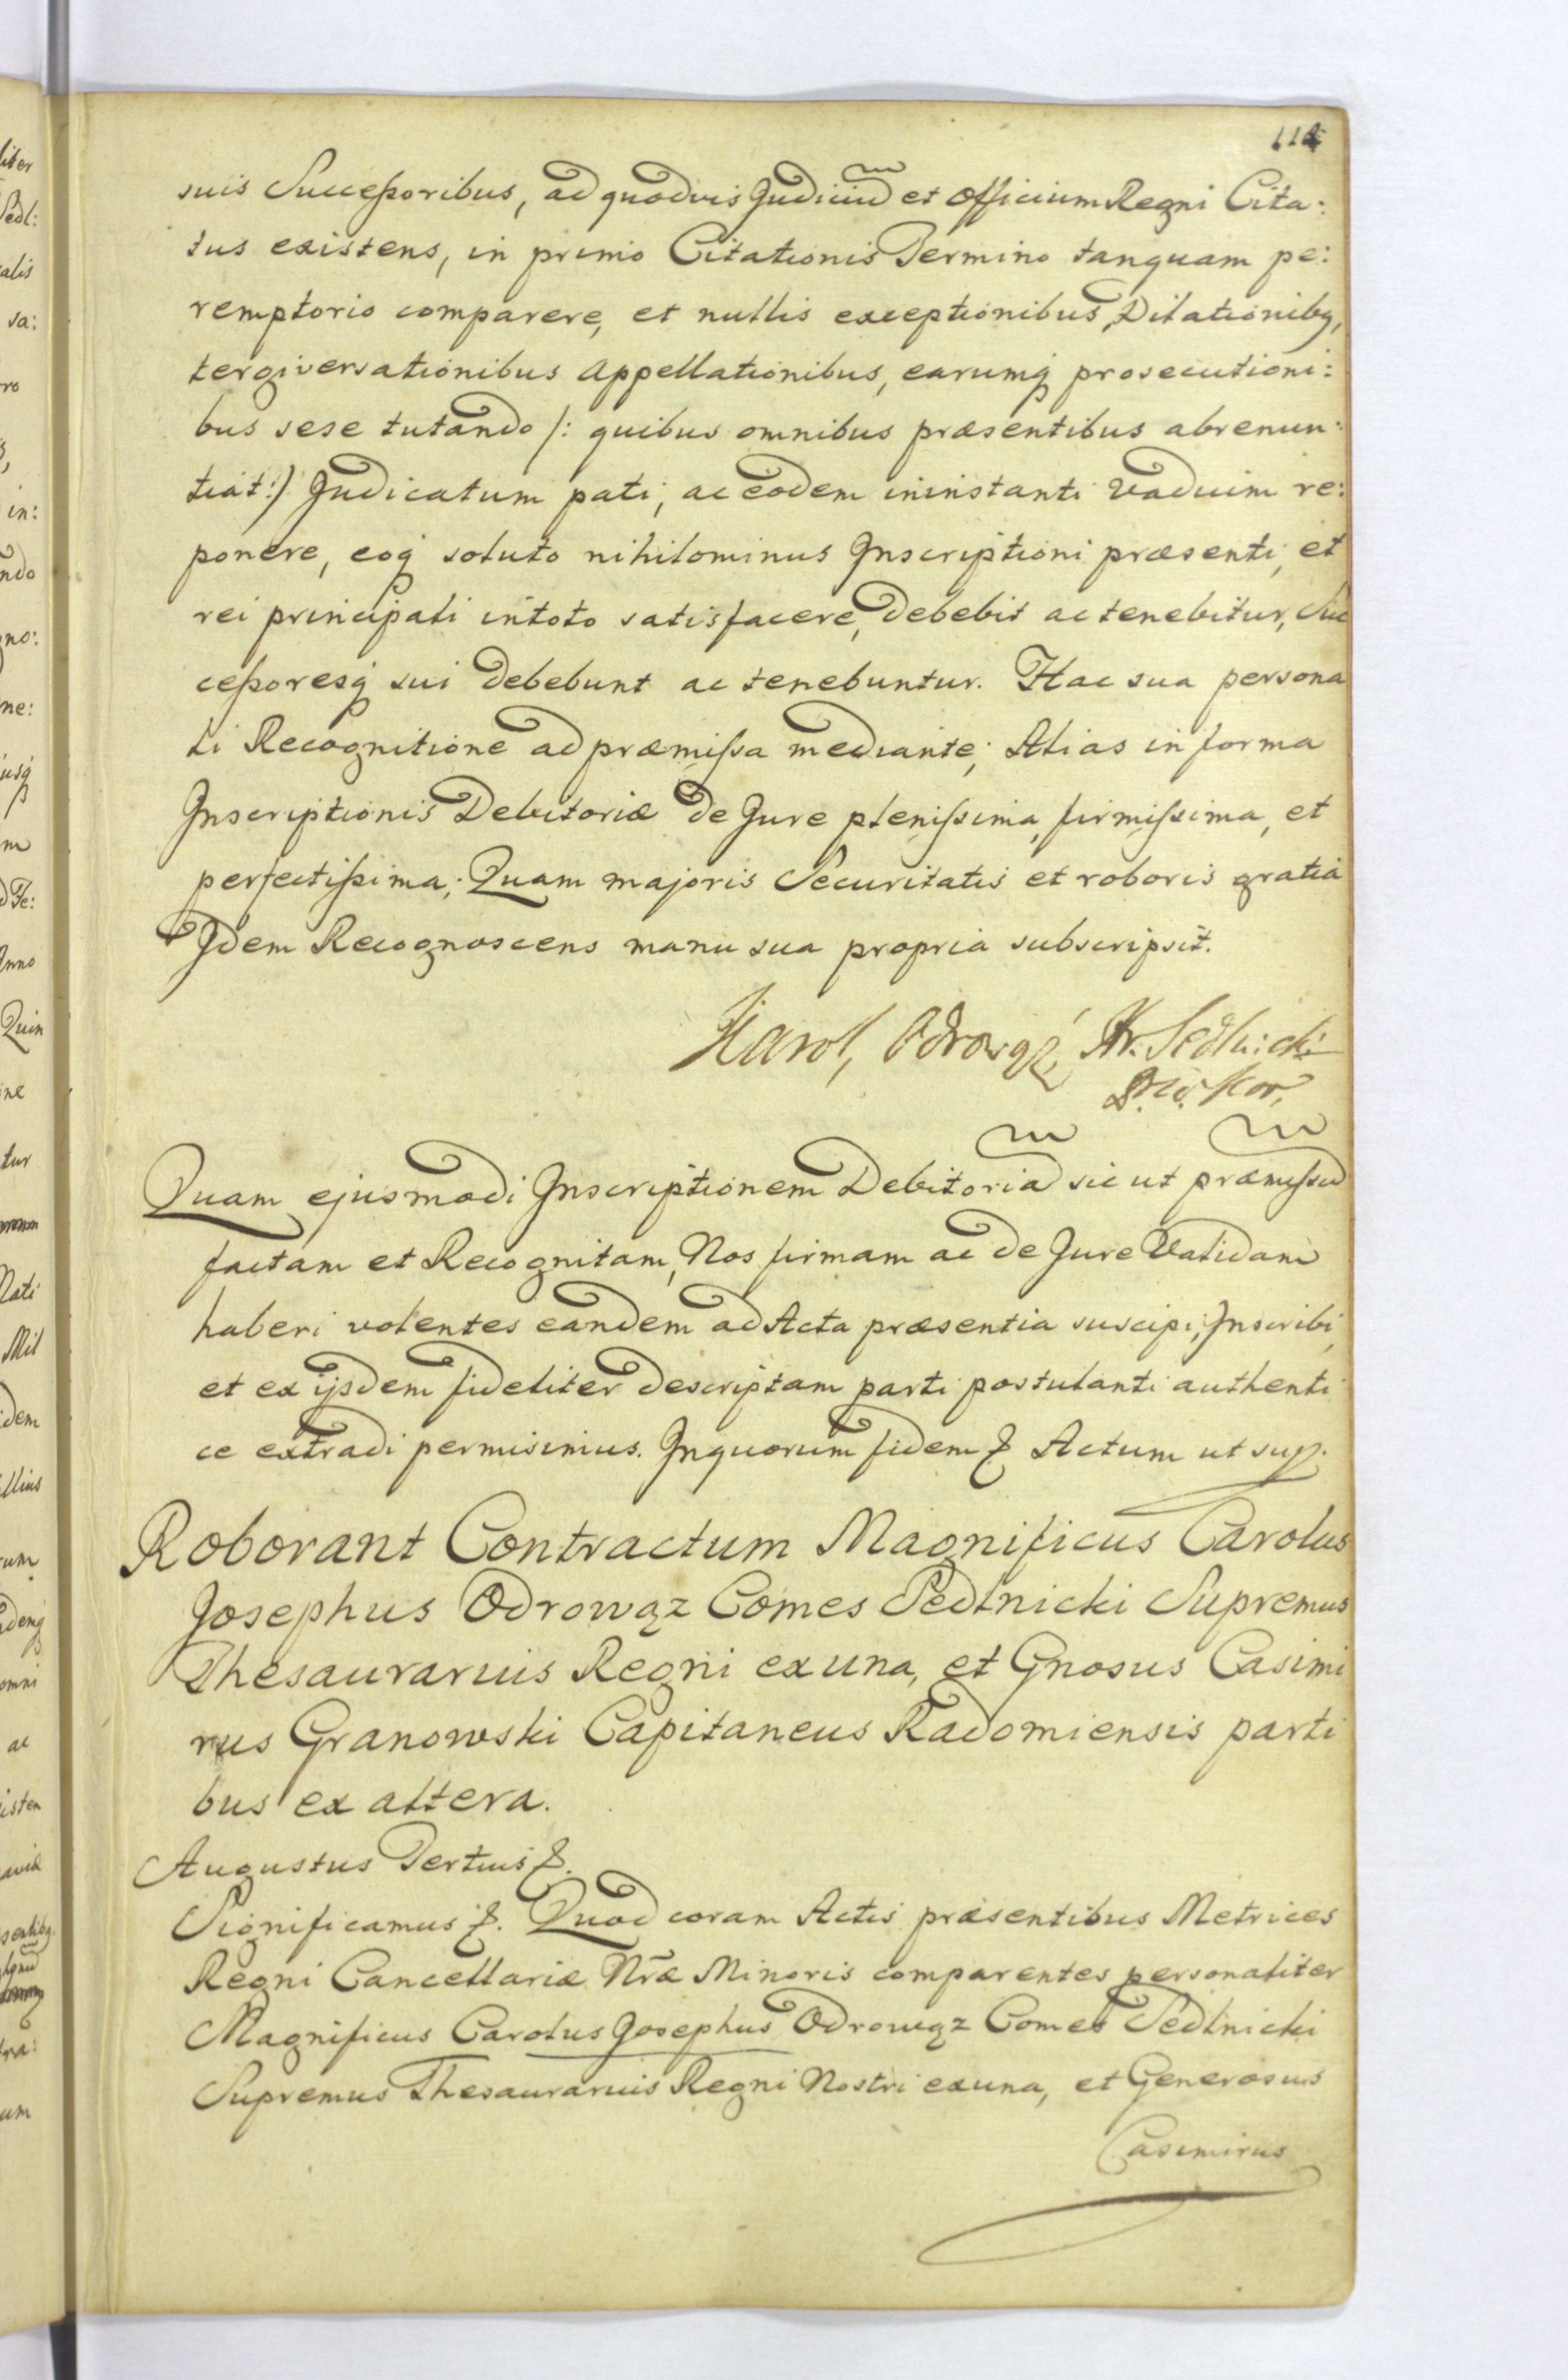 114
suis Successoribus, ad quodvis Judiciũ et Officium Regni Cita:
tus existens, in primo Citationis Termino tanquam pe:
remptorio comparere, et nullis exceptionibus, Dilationibq,
tergiversationibus Appellationibus, earumq prosecutioni:
bus sese tutando /: quibus omnibus præsentibus abrenun:
tiat :/ Judicatum pati, ac eodem ininstanti Vadium re:
ponere, eoq soluto nihilominus Inscriptioni præsenti, et
rei principali intoto satisfacere, debebit ac tenebitur, Suc
cessoresq sui debebunt ac tenebuntur. Hac sua persona
li Recognitione ad præmissa mediante; Alias in forma
Inscriptionis Debitoriæ de Jure plenissima, firmissima, et
perfectissima; Quam majoris Securitatis et roboris gratia
Idem Recognoscens manu sua propria subscripsit.
Karol, Odrowąż, Hr. Sedlnicki
P. W. Kor,
Quam ejusmodi Inscriptionem Debitoriã sic ut præmissũ
factam et Recognitam, Nos firmam ac de Jure Validam
haberi volentes eandem ad Acta præsentia suscipi, Inscribi,
et ex ijsdem fideliter descriptam parti postulanti authenti
ce extradi permisimus. Inquorum fidem & Actum ut sup.
Roborant Contractum Magnificus Carolus
Josephus Odrowąz Comes Sedlnicki Supremus
Thesaurarius Regni exuna, et Gnosus Casimi
rus Granowski Capitaneus Radomiensis parti
bus ex altera.
Augustus Tertius &.
Significamus &. Quod coram Actis præsentibus Metrices
Regni Cancellariæ Nr̃æ Minoris comparentes personaliter
Magnificus Carolus Josephus Odrowąz Comes Sedlnicki
Supremus Thesaurarius Regni Nostri exuna, et Generosus
Casimirus